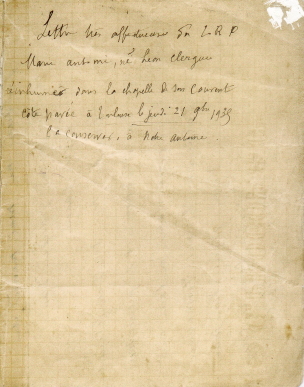 Lettre très affectueuse du T. R. P.
Marie antoine, né Léon Clergue
inhumé dans la chapelle de son Couvent
côte pavée à Toulouse le jeudi 21 9bre 1935
à conserver, à Notre antoine